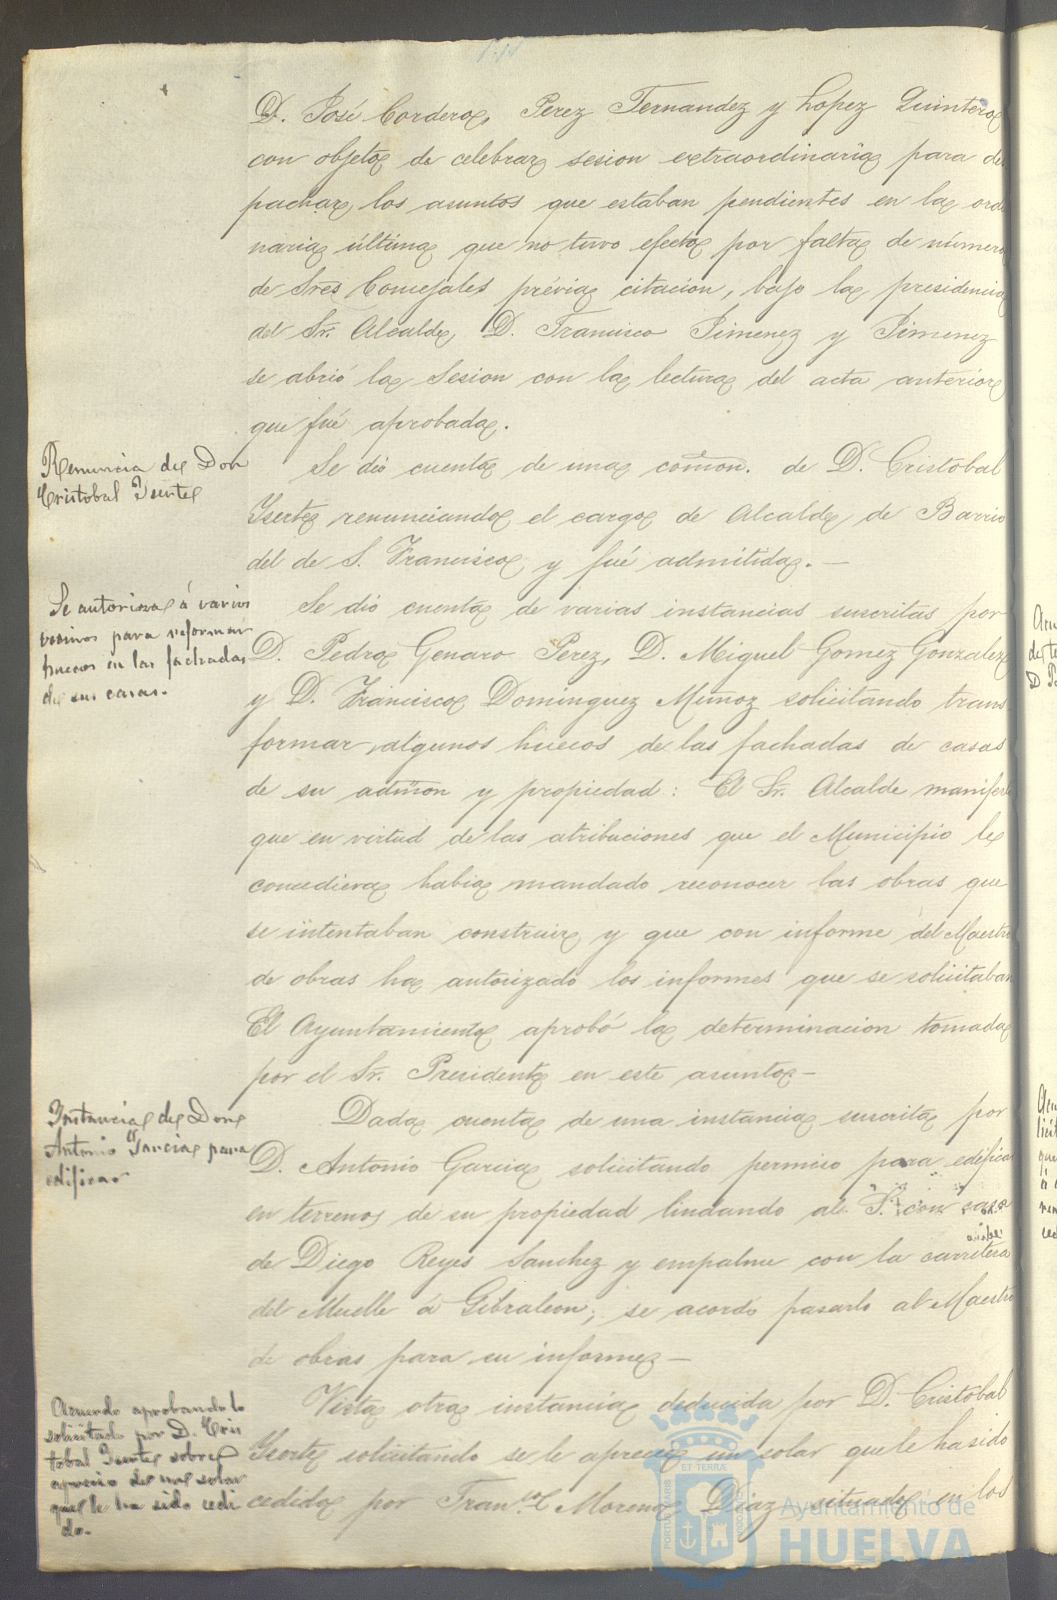 D. José Cordero, Perez Fernandez y Lopez Quintero
con objeto de celebrar sesion extraordinaria para des
pachar los asuntos que estaban pendientes en la ordi
naria última que no tuvo efecto por falta de número
de Sres Concejales prévia citacion, bajo la presidencia
del Sr. Alcalde, D. Francisco Jimenez y Jimenez
se abrió la Sesion con la lectura del acta anterior
que fué aprobada.
Renuncia de Don
Cristobal Iserte
Se dió cuenta de una comon. de D. Cristobal
Yserte renunciando el cargo de Alcalde de Barrio
del de S. Francisco y fué admitida.—
Se autoriza á varios
vecinos para reformar
huecos en las fachadas
de sus casas.
Se dió cuenta de varias instancias suscritas por
D. Pedro Genaro Perez, D. Miguel Gomez Gonzalez
y D. Francisco Domínguez Muñoz solicitando trans
formar algunos huecos de las fachadas de casas
de su admon y propiedad: El Sr. Alcalde manifestó
que en virtud de las atribuciones que el Municipio le
concediera habia mandado reconocer las obras que
se intentaban construir y que con informe del Maestro
de obras ha autorizado los informes que se solicitaban
El Ayuntamiento aprobó la determinacion tomada
por el Sr. Presidente en este asunto—
Instancia de Don
Antonio Garcia para
edificar
Dada cuenta de una instancia suscrita por
D. Antonio Garcia solicitando permiso para edificar
en terrenos de su propiedad lindando al S. con casa
de Diego Reyes Sanchez y empalme con la carretera
del Muelle á Gibraleon; se acordó pasarlo al Maestro
de obras para su informe—
Acuerdo aprobando lo
solicitado por D. Cris
tobal Iserte sobre
aprecio de un solar
que le ha sido cedi
do.
Vista otra instancia deducida por D. Cristobal
Yserte solicitando se le aprecie un solar que le ha sido
cedido por Franco Moreno Diaz situado en los
Ayuntamiento de
HUELVA